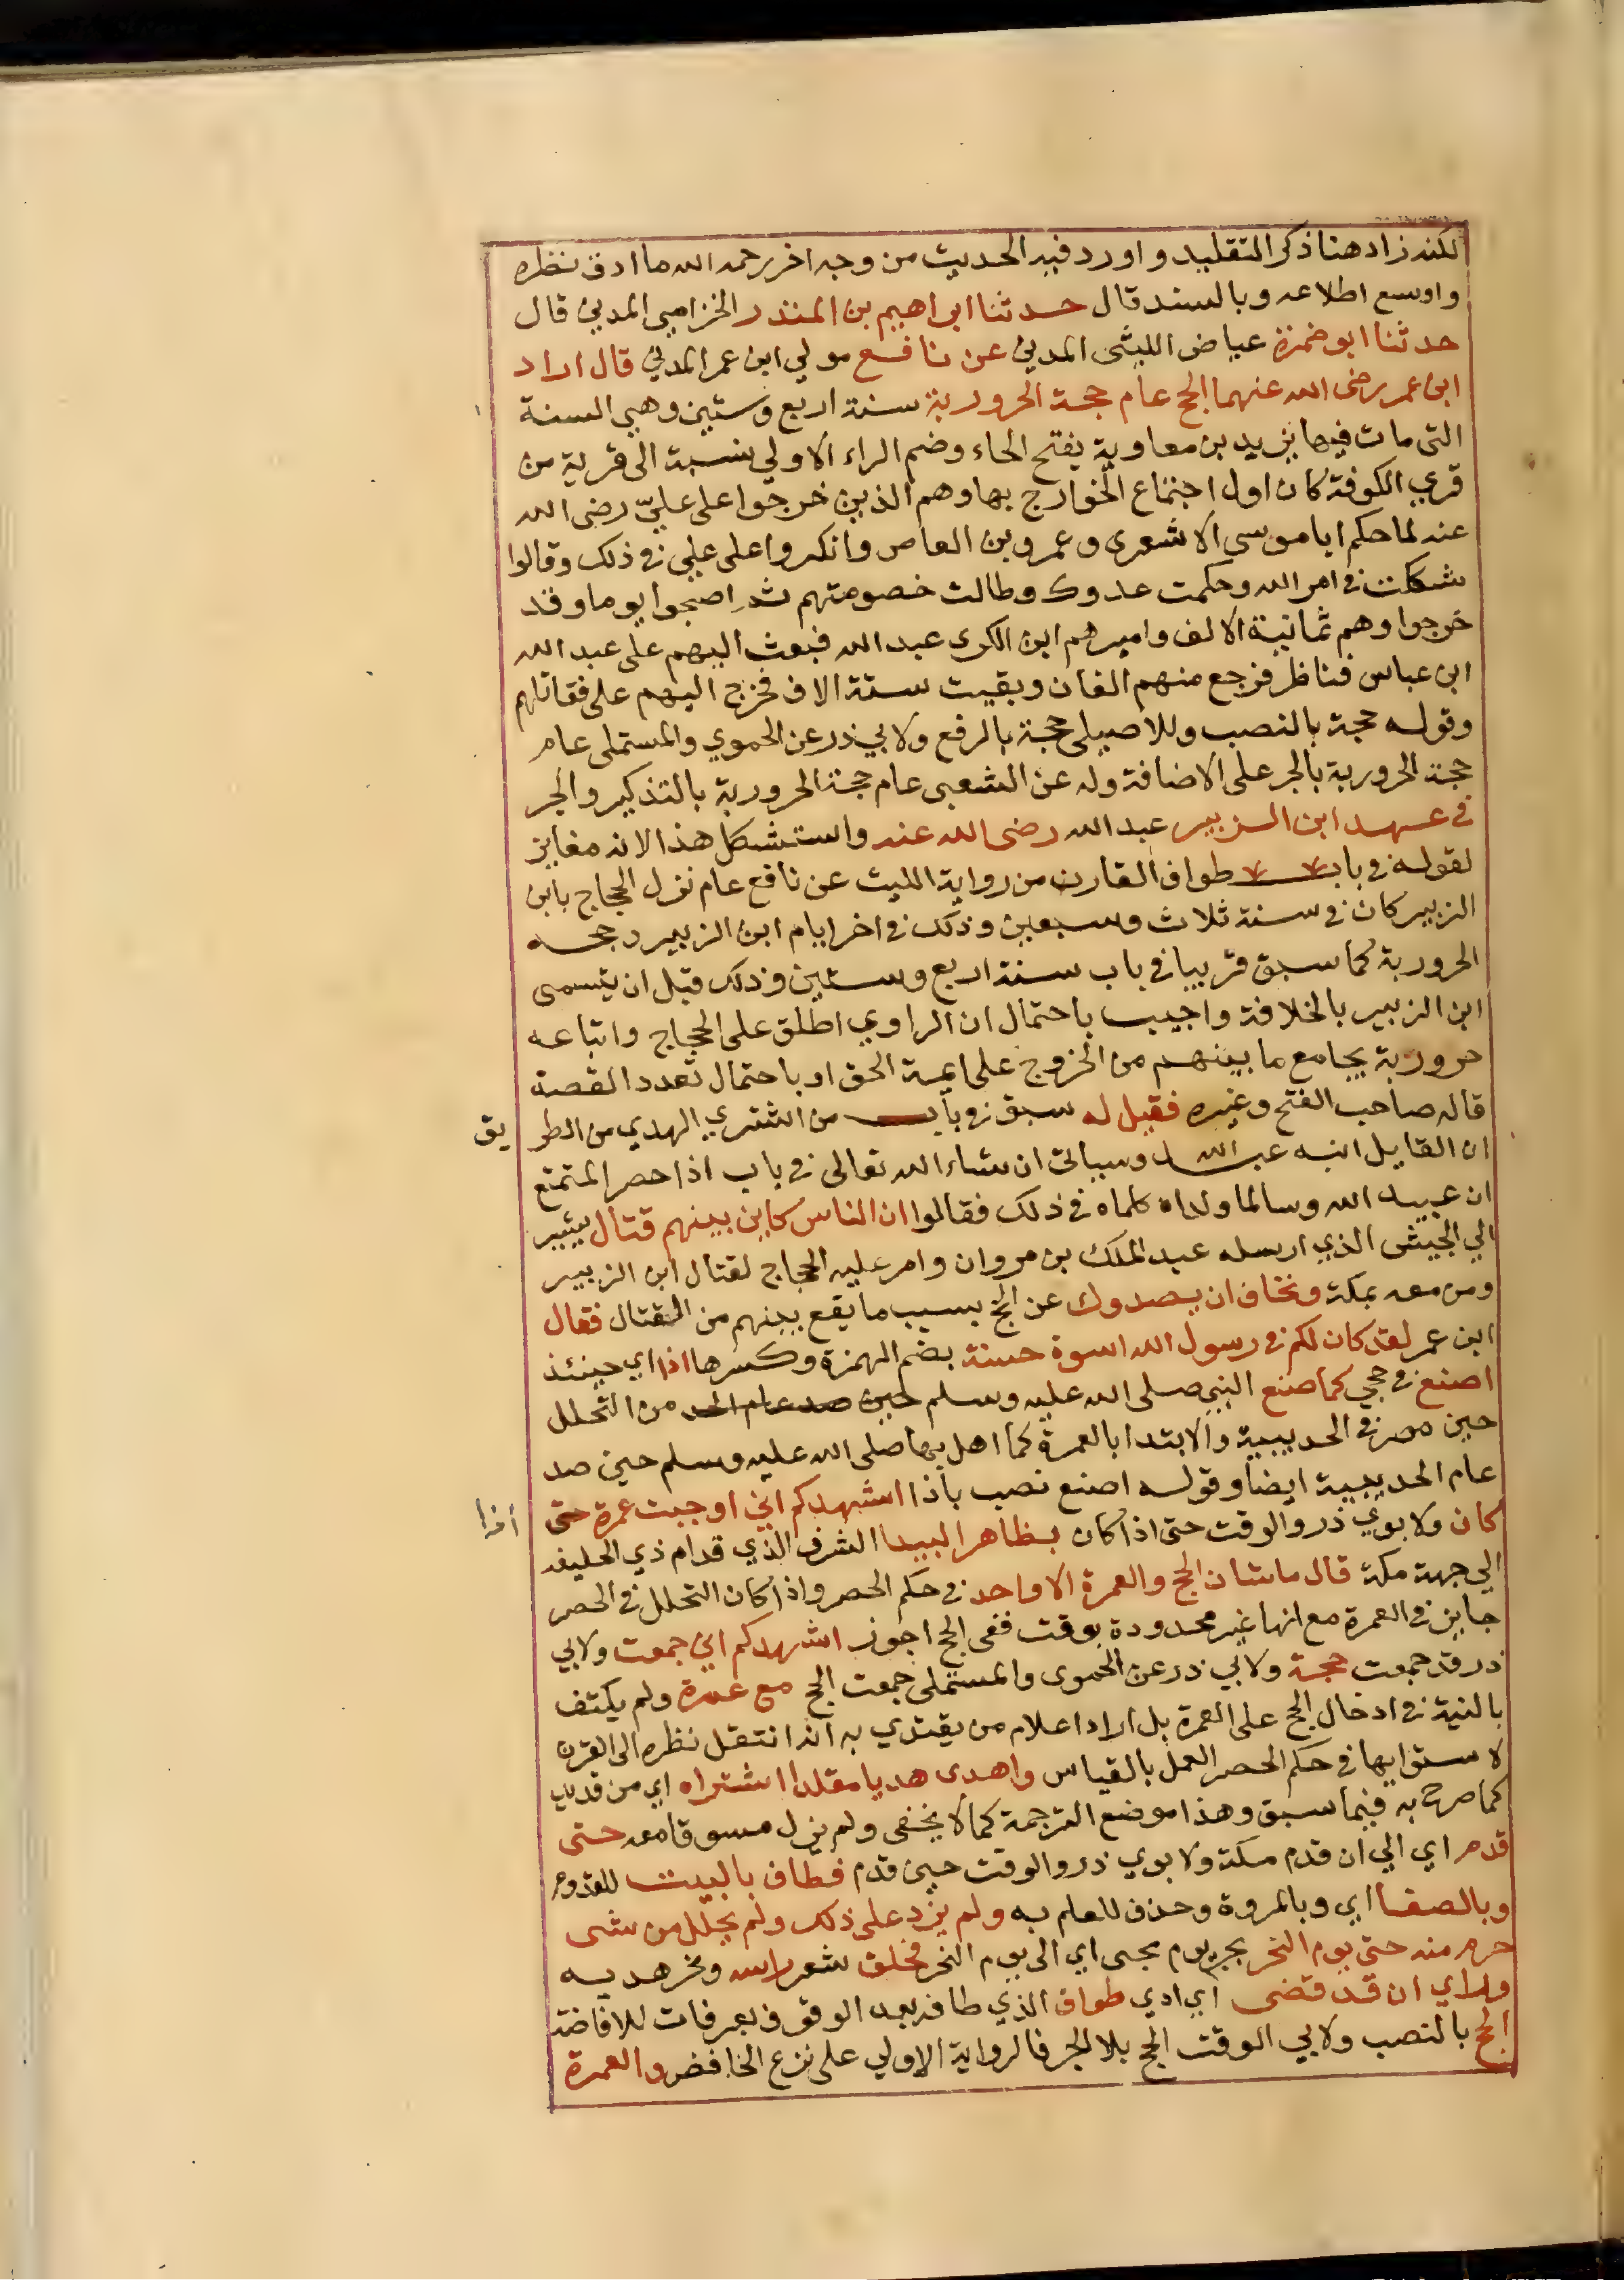 لكنه زاد هنا ذكر التقليد و اورد فيه الحديث من وجه اخر رحمه الله ما ادق نظره
واوسع اطلاعه وبالسند قال حدثنا ابراهيم بن المنذر الخزامي المدني قال
حدثنا ابو ضمزة عياض الليثى المدني عن نافع مولي ابن عمر المدني قال اراد
ابن عمر رضى الله عنهما الحج عام حجة الحرورية سنة اربع وستين وهي السنة
التى مات فيها يزيد بن معاوية بفتح الحاء وضم الراء الاولي نسبة الى قرية من
قري الكوفة كان اول اجتماع الخوارج بها وهم الذين خرجوا على عليّ رضى الله
عنه لما حكم ابا موسي الاشعرى وعمرو بن العاص وانكروا على علي في ذلك وقالوا
شككت في امر الله وحكمت عدوك وطالت خصومتهم ثم اصبحوا يوما وقد
خرجوا وهم ثمانية الالف واميرهم ابن الكوى عبد الله فبعث اليهم على عبد الله
ابن عباس فناظر فرجع منهم الفان وبقيت ستة الاف فخرج اليهم على فقاتلهم
وقوله حجة بالنصب وللاصيلى حجة بالرفع ولابي ذر عن الحموي والمستملى عام
حجة الحرورية بالجر على الاضافة وله عن الشعبى عام حجة الحرورية بالتذكير والجر
في عهد ابن الزبير عبد الله رضى الله عنه واستشكل هذا لانه مغاير
لقوله في باب طواف القارن من رواية الليث عن نافع عام نزل الحجاج بابن
الزبير كان في سنة ثلاث وسبعين وذلك في اخر ايام ابن الزبير وحجه
الحرورية كما سبق قريبا في باب سنة اربع وستين وذلك قبل ان يتسمى
ابن الزبير بالخلافة واجيب باحتمال ان الراوي اطلق على الحجاج واتباعه
حرورية بجامع ما بينهم من الخروج على ايمة الحق او باحتمال تعدد القصة
قاله صاحب الفتح وغيره فقيل له سبق في باب من اشتري الهدي من الطر يق
ان القايل ابنه عبد الله وسياتى ان شاء الله تعالى في باب اذا حصر المتمتع
ان عبيد الله وسالما ولداه كلماه في ذلك فقالوا ان الناس كاين بينهم قتال يشير
الي الجيش الذي ارسله عبد الملك بن مروان وامر عليه الحجاج لقتال ابن الزبير
ومن معه بمكة ونخاف ان يصدوك عن الحج بسبب ما يقع بينهم من القتال فقال
ابن عمر لقد كان لكم في رسول الله اسوة حسنة بضم الهمزة وكسرها اذا اي حينئذ
اصنع في حجي كما صنع النبي صلى الله عليه وسلم حين صد عام الحد من التحلل
حين حصر في الحديبية والابتدا بالعمرة كما اهل بها صلى الله عليه وسلم حين صد
عام الحديبية ايضا وقوله اصنع نصب باذا اشهدكم اني اوجبت عمرة حتى أذا
كان ولابوي ذر والوقت حتى اذا كان بظاهر البيدا الشرف الذي قدام ذي الحليفه
الي جهة مكة قال ما شان الحج والعمرة الا واحد في حكم الحصر واذا كان التحلل في الحصر
جايز في العمرة مع انها غير محدودة بوقت ففى الحج اجوز اشهدكم اني جمعت ولابي
ذر قد جمعت حجة ولابي ذر عن الحموى والمستملى جمعت الحج مع عمرة ولم يكتف
بالنية في ادخال الحج على العمرة بل اراد اعلام من يقتدي به انه انتقل نظره الى القرن
لاستوايها في حكم الحصر العمل بالقياس واهدى هديا مقلدا اشتراه اي من قديد
كما صرح به فيما سبق وهذا موضع الترجمة كما لا يخفى ولم يزل مسوقا معه حتى
قدم اي الي ان قدم مكة ولابوي ذر والوقت حين قدم فطاف بالبيت للقدوم
وبالصفا اي وبالمروة وحذف للعلم به ولم يزد على ذلك ولم يحلل من شى
حرم منه حتى يوم النحر بجر يوم بحى اي الى يوم النحر فحلق شعر راسه ونحر هديه
وراي ان قد قضى اي ادي طواف الذي طافه بعد الوقوف بعرفات للافاضة
الحج بالنصب ولابي الوقت الحج بلا الجر فالرواية الاولي على نزع الخافض والعمرة